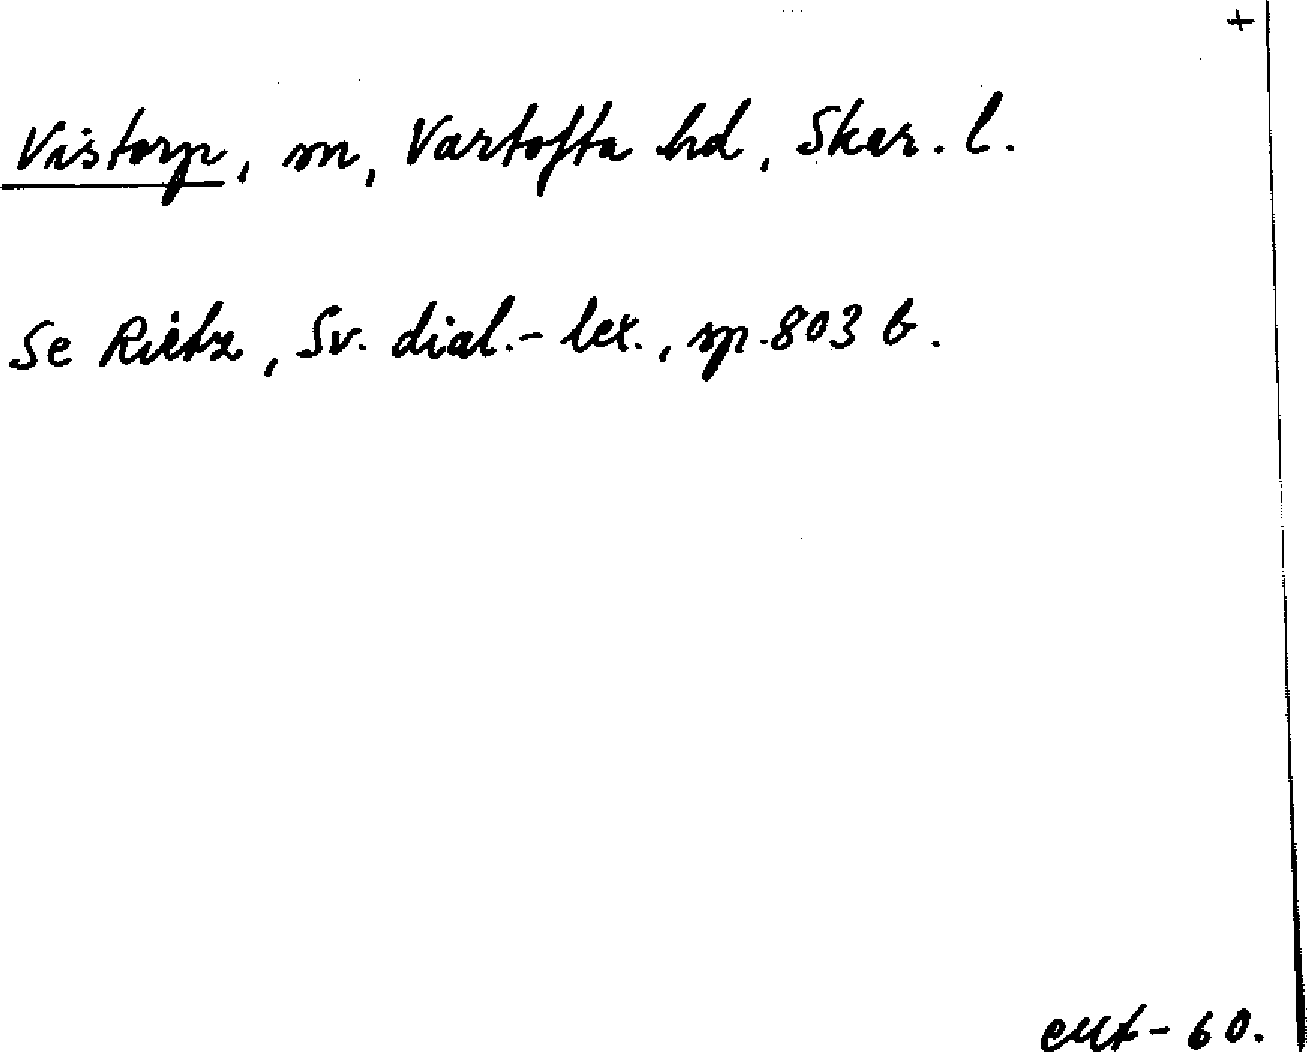 +
Vistorp, sn, Vartofta hd, Skar. l.
Se Rietz, Sv. dial.-lex., sp. 803 b.
-60.